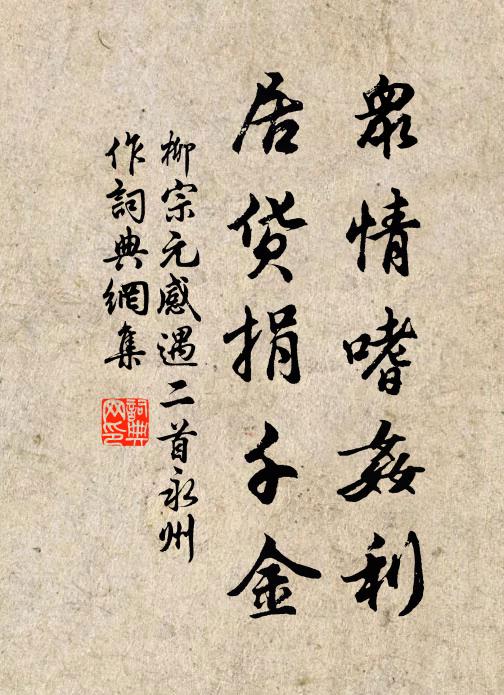 眾情嗜姦利
居貨捐千金
柳宗元感遇二首永州
作詞典網集
詞典
网印